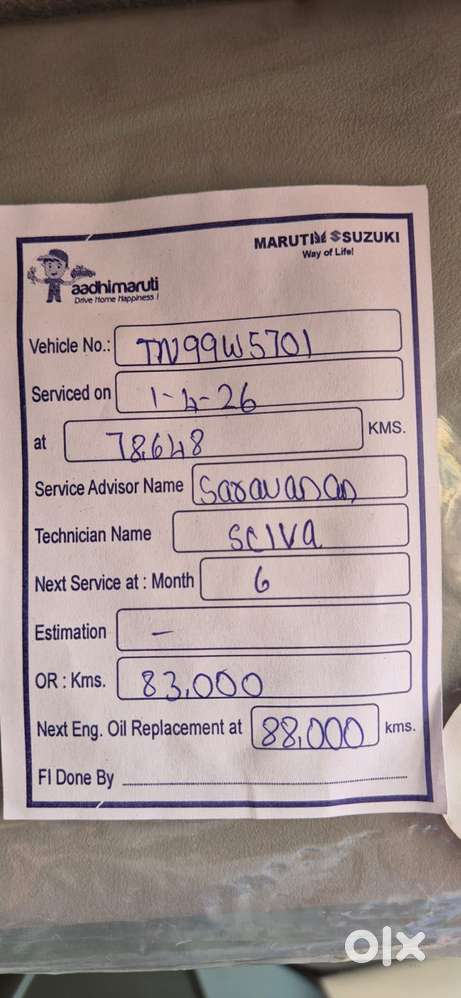 MARUTI SUZUKI
Way of Life!
aadhimaruti
Drive Home Happiness !
Vehicle No.: TN99W5701
Serviced on 1-4-26
at 78,648 KMS.
Service Advisor Name Saravanan
Technician Name SCIVA
Next Service at : Month 6
Estimation -
OR : Kms. 83,000
Next Eng. Oil Replacement at 88,000 kms.
FI Done By
olx